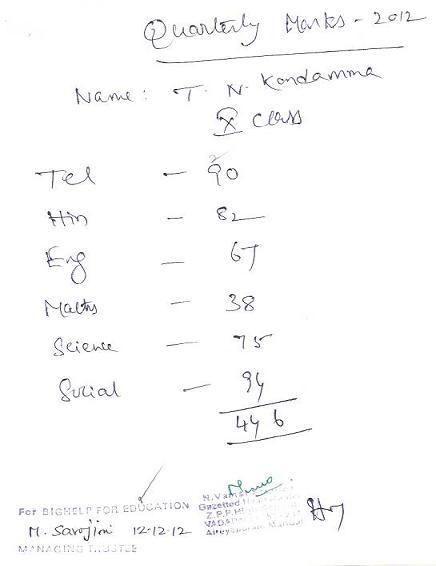 Quarterly Marks - 2012
Name: T. N. Kondamma
X class
Tel - 90
Hin - 82
Eng - 67
Maths - 38
Science - 75
Social - 94
446
For BIGHELP FOR EDUCATION
M. Sarojini 12-12-12
MANAGING TRUSTEE
N.Vams
Gazetted
Z.P.P.H
Mandal